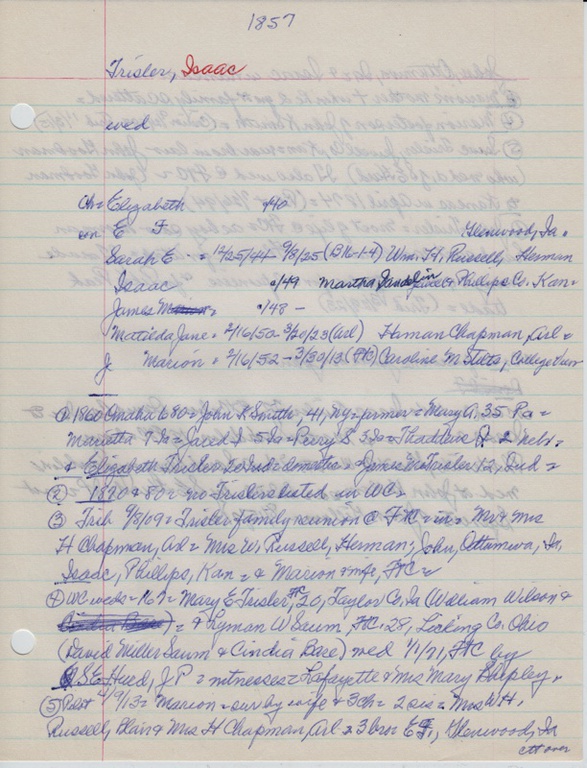 1857
Trisler, Isaac
wed
Ch = Elizabeth - 1840
E F Glenwood, Ia.
Sarah E = 12/25/44 9/8/25 (B 16-1-4) Wm. H. Russell, Herman
Isaac 1849 Martha Phillips Co. Kan =
James 1848 -
Matilda Jane = 2/16/50 - 3/20/23 (Arl) Hiram Chapman, Arl =
Marion = 2/16/52 - 3/30/13 (FtC) Caroline M Stitts, College View
① 1860 Omaha 680 = John K Smith - 41, NY = farmer = Mary A, 35 Pa =
Marietta 7 Ia = Jared S 5 Ia = Perry S 3 Ia = Thaddeus 2 nebr =
& Elizabeth Trisler 20 Ind = domestic = James Trisler 12, Ind =
② 1870 & 80 = no Trislers listed in WC =
③ Trib 9/8/09 = Trisler family reunion @ FtC = in = Mr & Mrs
H Chapman, Arl = Mrs W. Russell, Herman; John, Ottumwa, Ia,
Isaac, Phillips, Kan = & Marion & wife, FtC =
④ WC weds = 167 = Mary E Trisler, FtC 20, Taylor Co. Ia (William Wilson &
) = & Lyman W Saum, FtC - 28, Licking Co. Ohio
(David Miller Saum & Cindia Bace) wed 1/1/71, FtC by
S E Hurd, J P = witnesses = Lafayette & Mrs Mary Shepley.
⑤ Pilot 4/9/13 = Marion = surv by wife & 3 ch = 2 sis = Mrs W H
Russell, Blair & Mrs H Chapman, Arl = 3 bro = E F, Glenwood, Ia
over